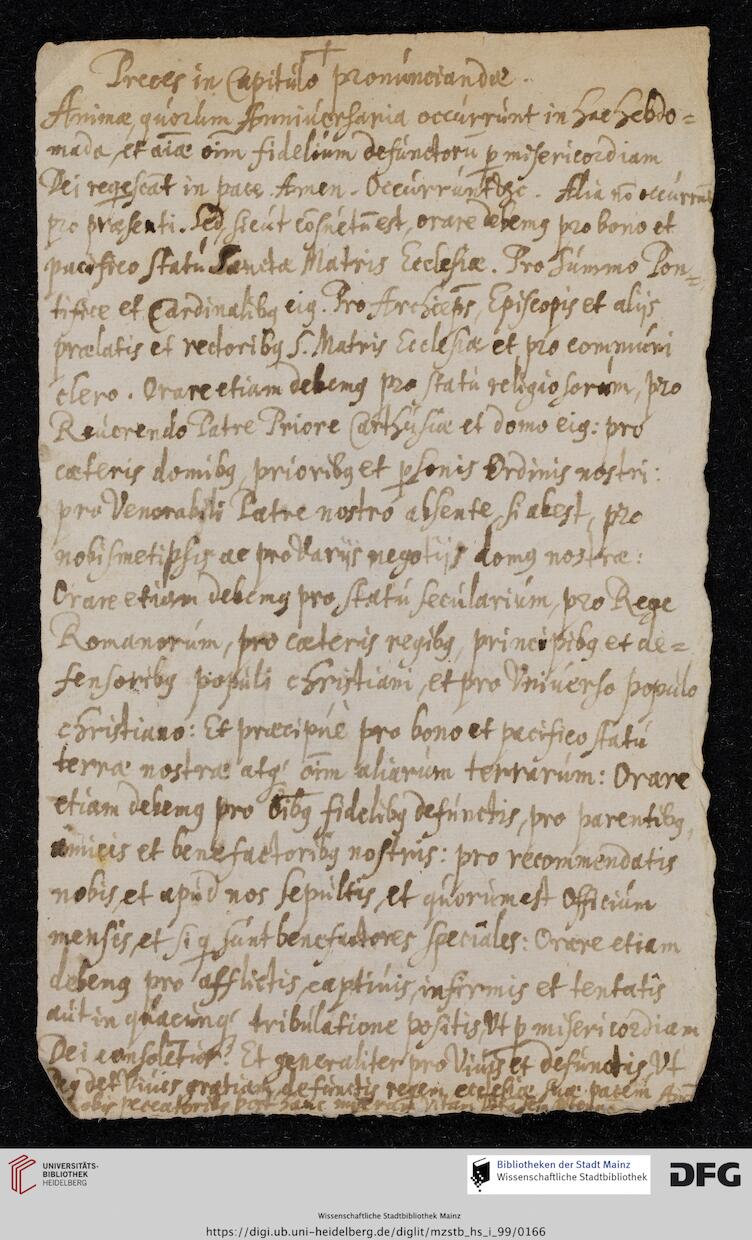 Preces in Capitulo pronunciandæ.
Animæ, quorum Anniversaria occurrunt in hac Hebdo=
mada, et aīæ oīm fidelium defunctorū p misericordiam
Dei reqescāt in pace. Amen. Occurrunt &c. Alia nō occurrunt
pro præsenti. Sed, sicut cōsuetū est, orare debemꝯ pro bono et
pacifico statu Sanctæ Matris Ecclesiæ. Pro Summo Pon=
tifice et Cardinalibꝯ eiꝯ. Pro Archieps, Episcopis et alijs
prælatis et rectoribꝯ S. Matris Ecclesiæ et pro communi
clero. Orare etiam debemꝯ pro statu religiosorum, pro
Reverendo Patre Priore Carthusiæ et domo eiꝯ: pro
cæteris domibꝯ, prioribꝯ et psonis Ordinis nostri:
pro Venerabili Patre nostro absente, si abest, pro
nobismetipsis ac pro varijs negotijs domꝯ nostræ:
Orare etiam debemꝯ pro statu secularium, pro Rege
Romanorum, pro cæteris regibꝯ, principibꝯ et de=
fensoribꝯ populi christiani, et pro Universo populo
christiano: Et præcipuè pro bono et pacifico statu
terræ nostræ atqꝫ oīm aliarum terrarum: Orare
etiam debemꝯ pro oībꝯ fidelibꝯ defunctis, pro parentibꝯ,
amicis et benefactoribꝯ nostris: pro recommendatis
nobis, et apud nos sepultis, et quorum est Officium
mensis, et si q sunt benefactores speciales: Orare etiam
debemꝯ pro afflictis, captivis, infirmis et tentatis
aut in quacunqꝫ tribulatione positis, Ut p misericordiam
Dei consoletur. Et generaliter pro Vivis et defunctis, Ut
det Vivis gratiam, defunctis requiem, ecclesiæ suæ pacem
nobis peccatoribus post hanc Vitam
UNIVERSITÄTS-
BIBLIOTHEK
HEIDELBERG
Bibliotheken der Stadt Mainz
Wissenschaftliche Stadtbibliothek
DFG
Wissenschaftliche Stadtbibliothek Mainz
https://digi.ub.uni-heidelberg.de/diglit/mzstb_hs_i_99/0166